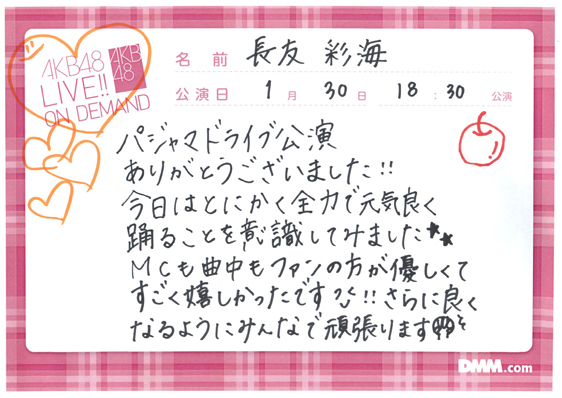 AKB48
LIVE!!
ON DEMAND
AKB
48
名前 長友 彩海
公演日 1月 30日 18:30 公演
パジャマドライブ公演
ありがとうございました!!
今日はとにかく全力で元気良く
踊ることを意識してみました
MCも曲中もファンの方が優しくて
すごく嬉しかったです!!さらに良く
なるようにみんなで頑張ります
DMM.com